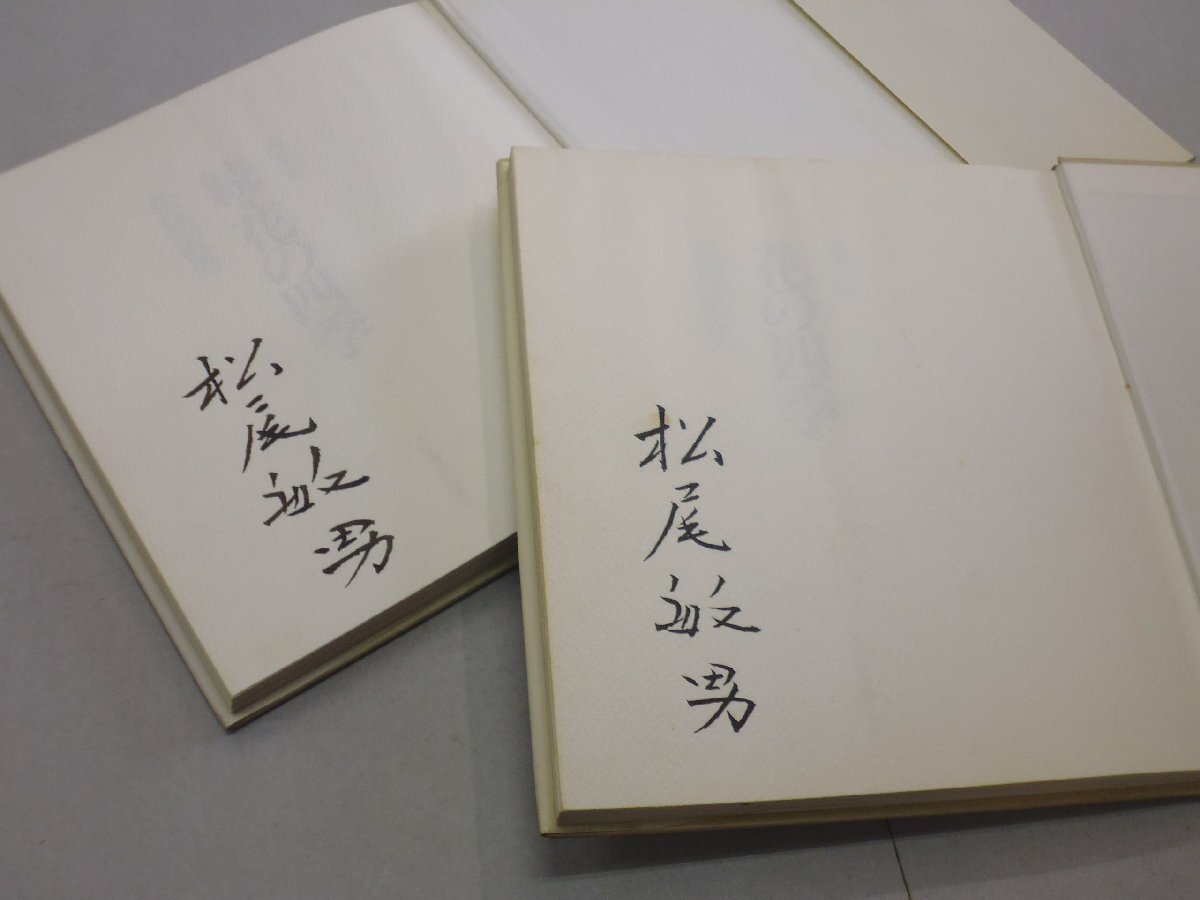 松尾敏男
松尾敏男